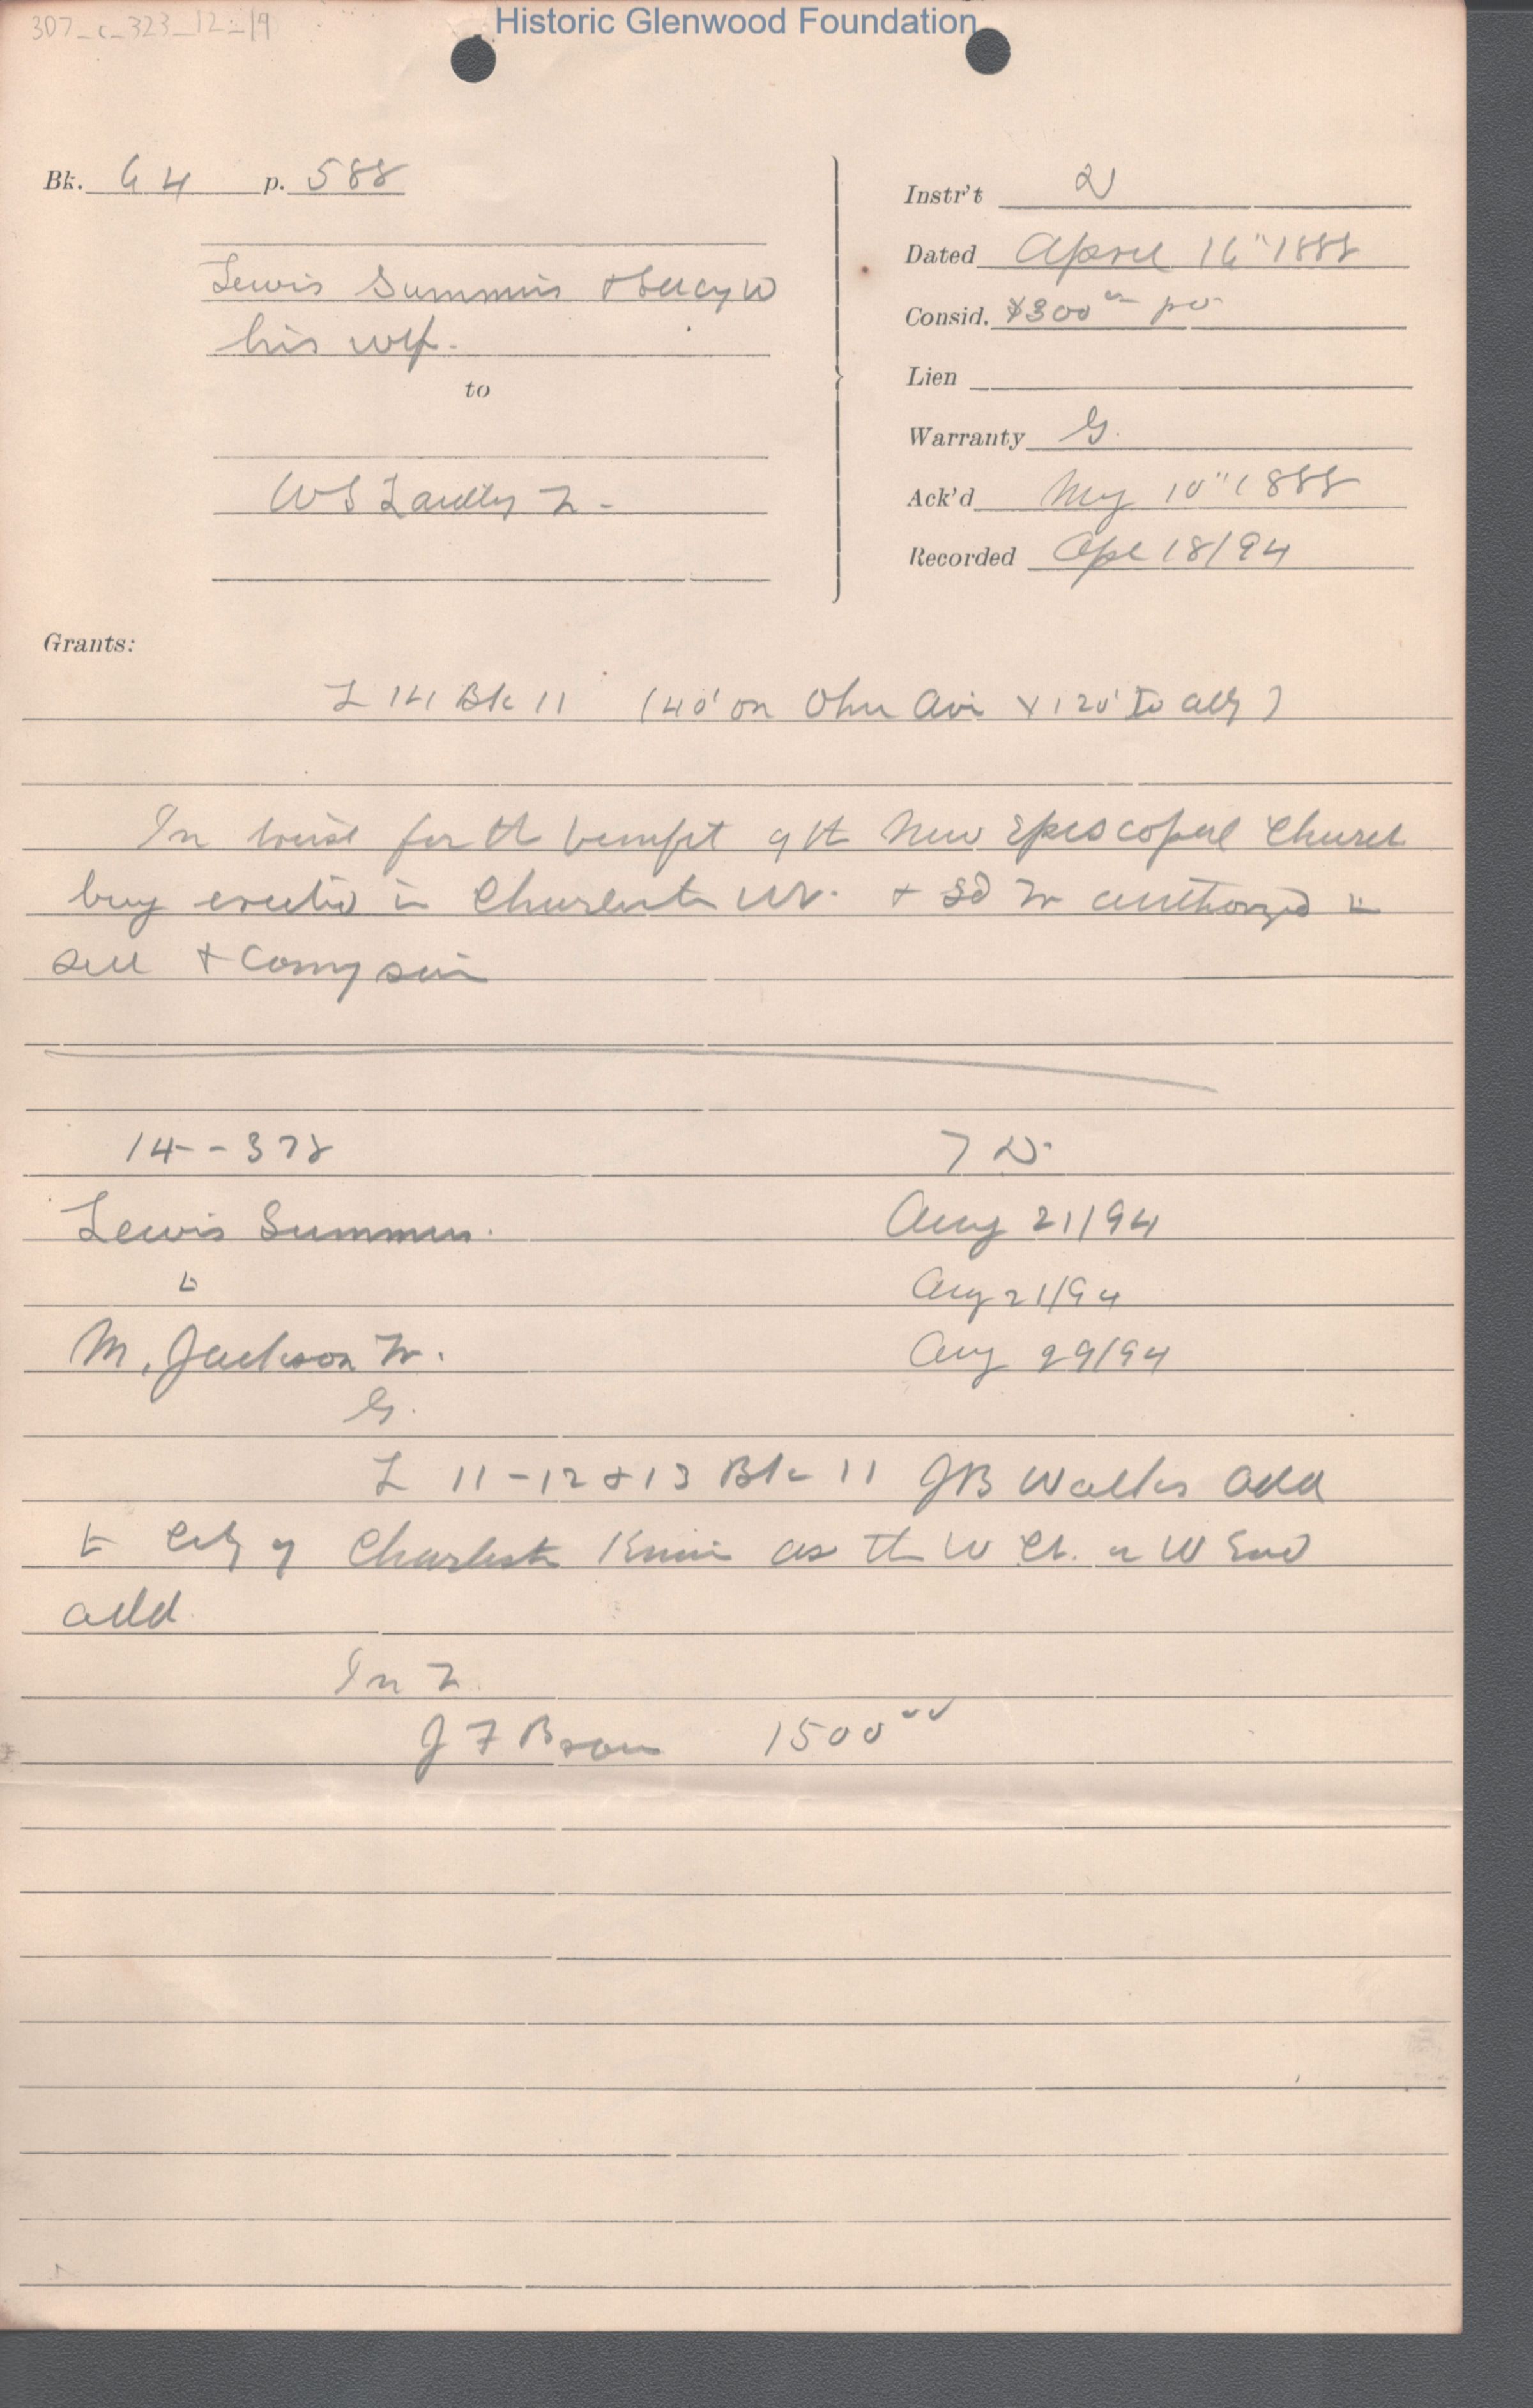 307_c_323_12_19
Historic Glenwood Foundation
Bk. 64 p. 588
Instr't D
Dated April 16" 1888
Consid. $300 00 pd
Lewis Summers & Lucy W
his wf.
to
Lien
Warranty G.
W S Laidley Tr.
Ack'd May 10" 1888
Recorded Apl 18/94
Grants:
L 14 Bk 11 (40' on Ohio Ave x 120' to ally)
In trust for th benefit of th New Episcopal Church
being erected in Charleston W.V. & sd Tr authorized to
sell & convey same
14--378
TD.
Lewis Summers.
Aug 21/94
to
Aug 21/94
M. Jackson Tr.
Aug 29/94
G.
L 11-12 & 13 Blk 11 JB Walker add
to City of Charleston Known as th W Ch. or W End
add.
In T.
J F Brown 1500 00